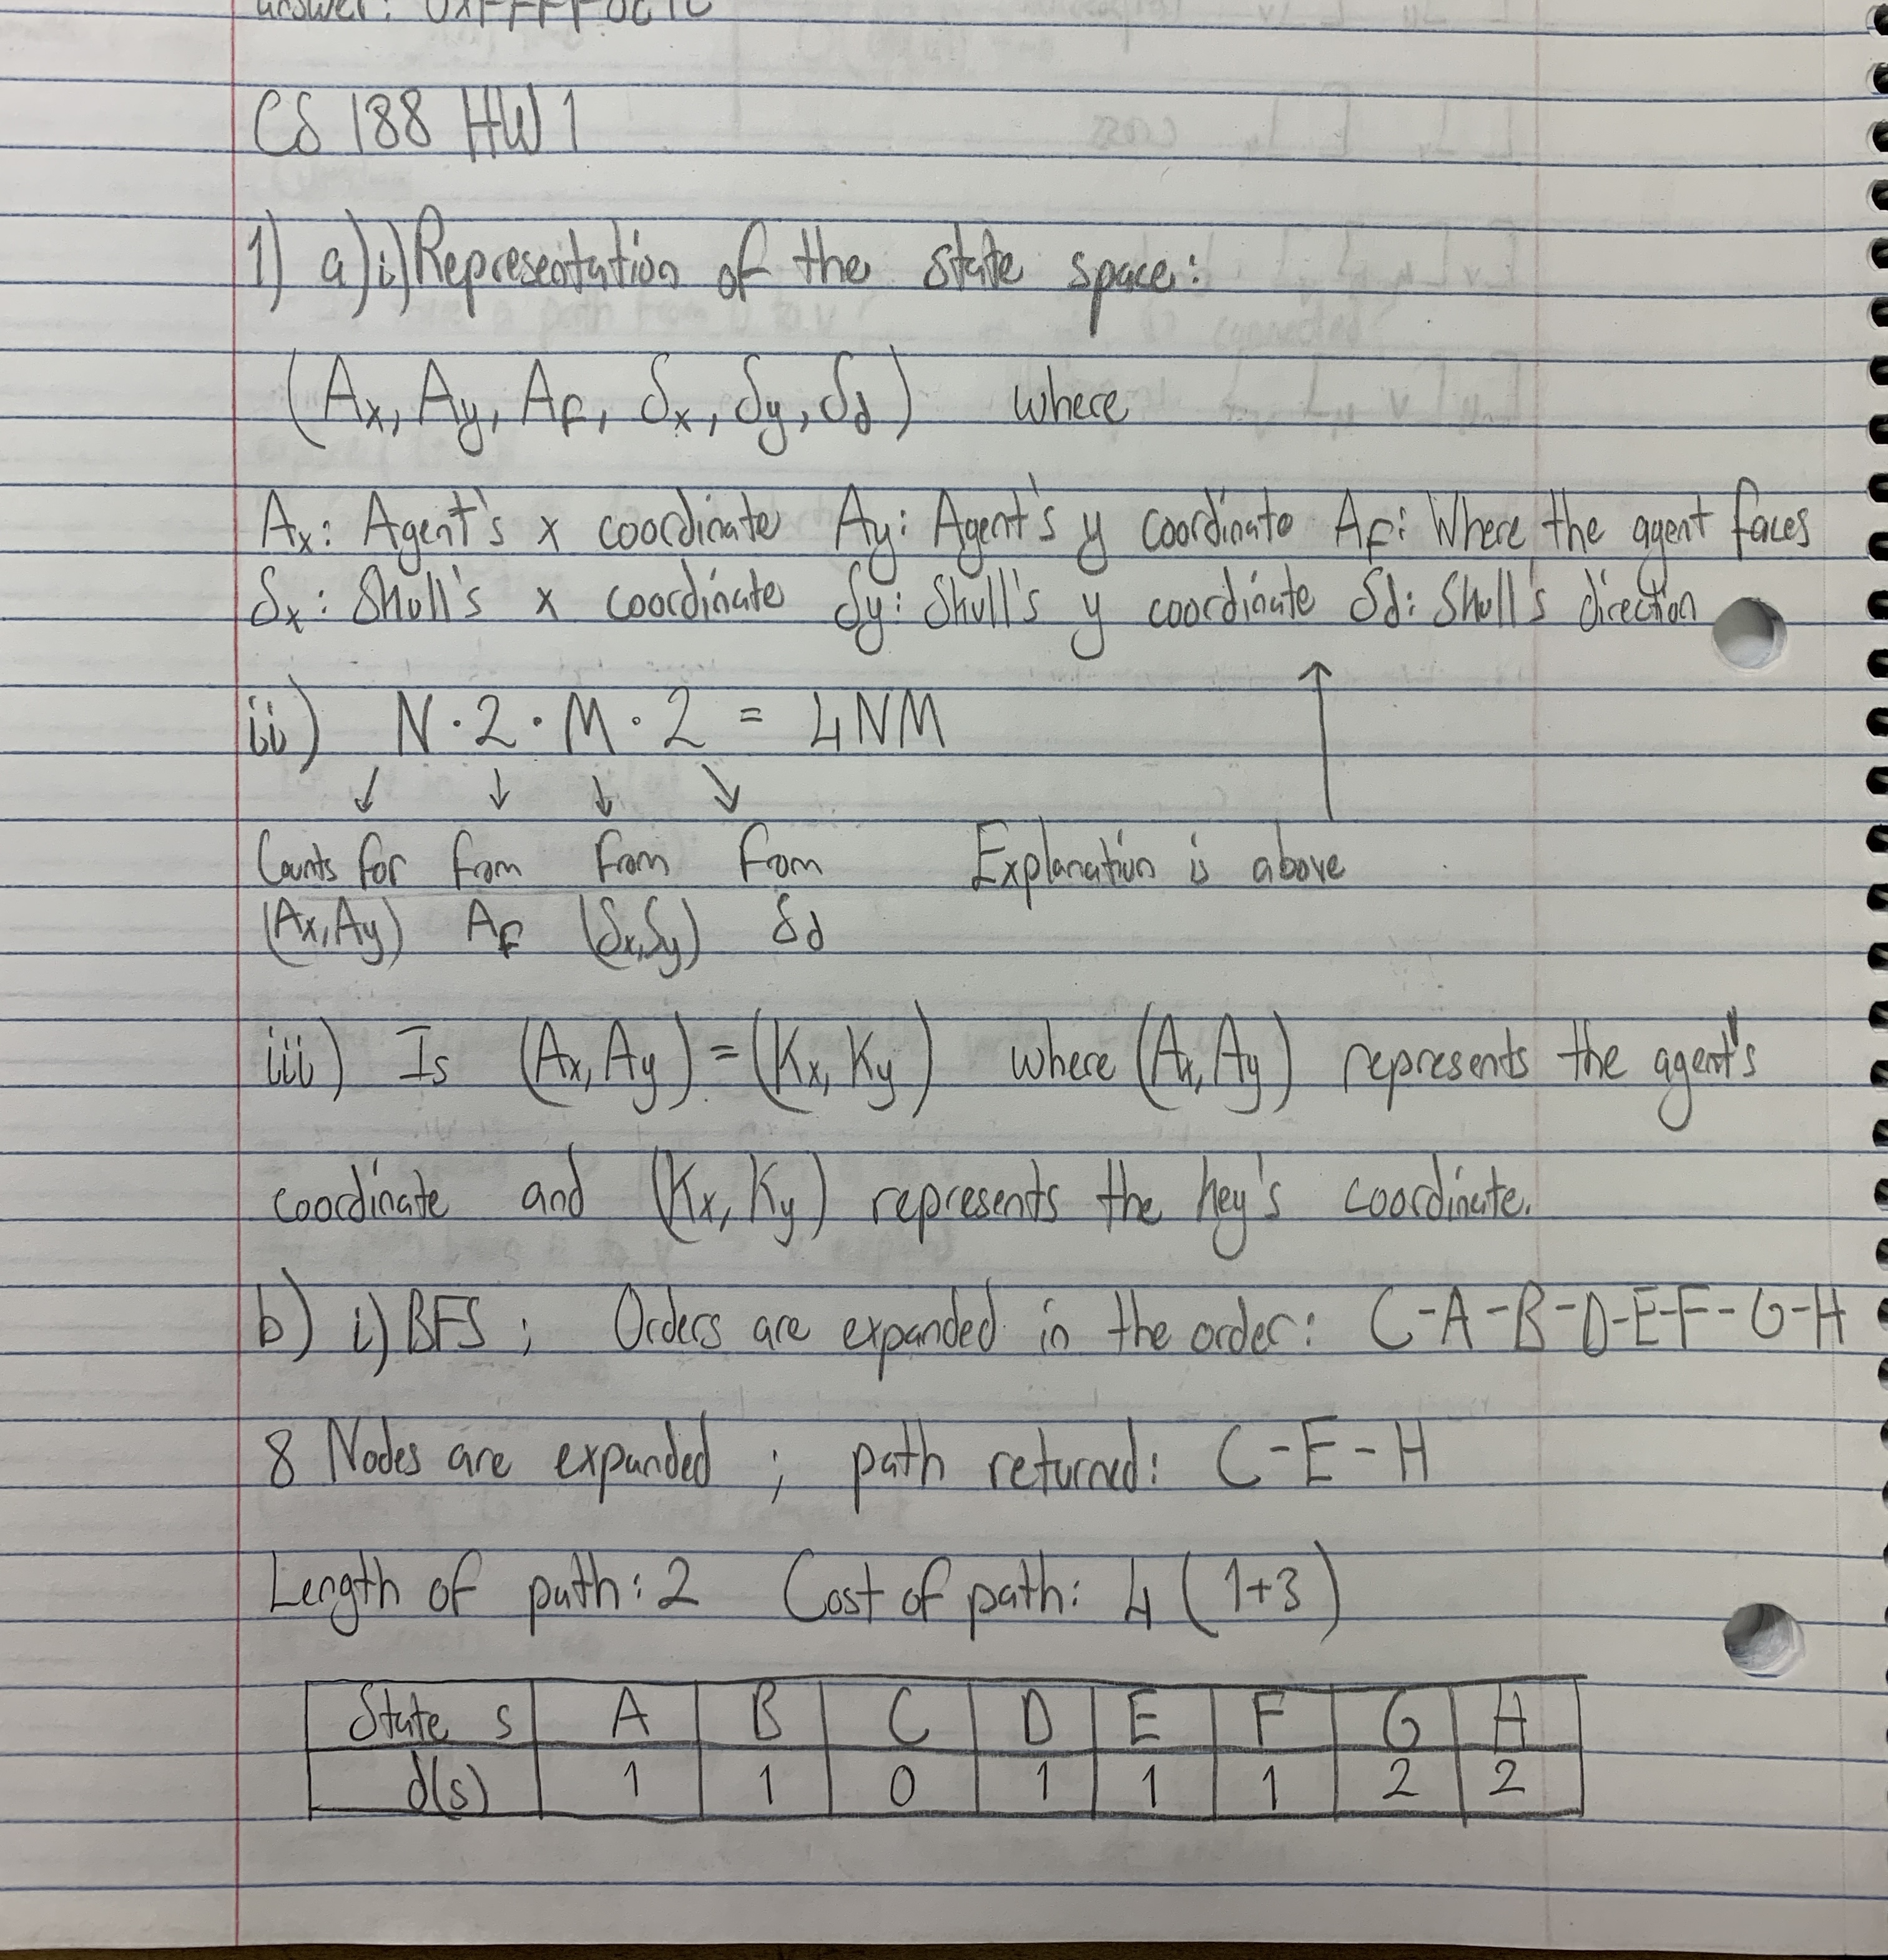 CS 188 HW 1
1) a) i) Representation of the state space:
(Ax, Ay, AF, Sx, Sy, Sd) where
Ax: Agent's x coordinate Ay: Agent's y coordinate AF: Where the agent faces
Sx: Skull's x coordinate Sy: Skull's y coordinate Sd: Skull's direction
ii) N · 2 · M · 2 = 4NM
↙ ↓ ↓ ↘ ↑
Counts for from from from Explanation is above
(Ax, Ay) AF (Sx, Sy) Sd
iii) Is (Ax, Ay) = (Kx, Ky) where (Ax, Ay) represents the agent's
coordinate and (Kx, Ky) represents the key's coordinate.
b) i) BFS; Orders are expanded in the order: C-A-B-D-E-F-G-H
8 Nodes are expanded; path returned: C-E-H
Length of path: 2 Cost of path: 4 (1+3)
State s A B C D E F G H
d(s) 1 1 0 1 1 1 2 2